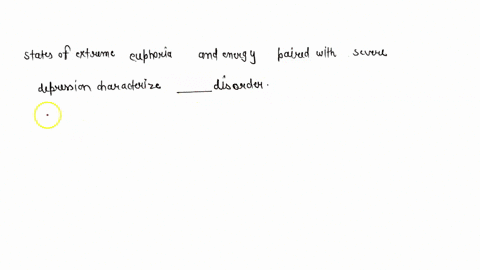 states of extreme euphoria and energy paired with severe
depression characterize _____ disorder.